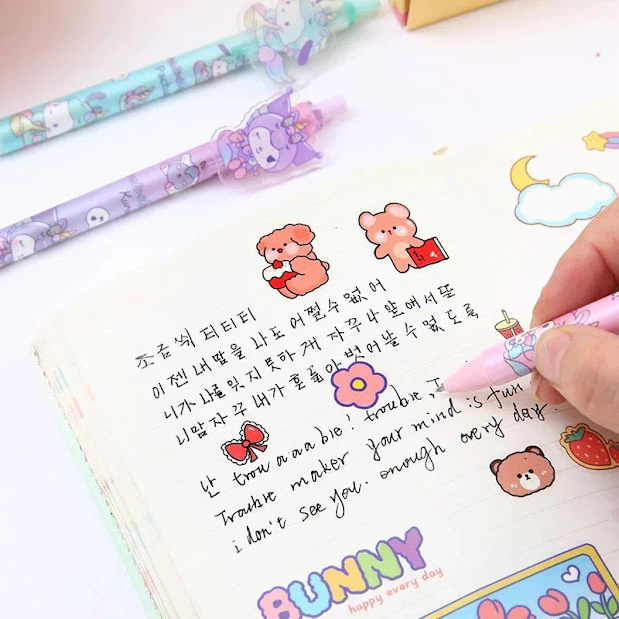 조금씩 더 티티티
이젠 내 맘을 나도 어쩔수 없어
니가 나를 잊지 못하게 자꾸 나 앞에서 또
니맘 자꾸 내가 흔들어 벗어날 수 없도록
난 trou a a a ble! trouble, T
Trouble maker your mind is fun
i don't see you. enough every day.
BUNNY
happy every day